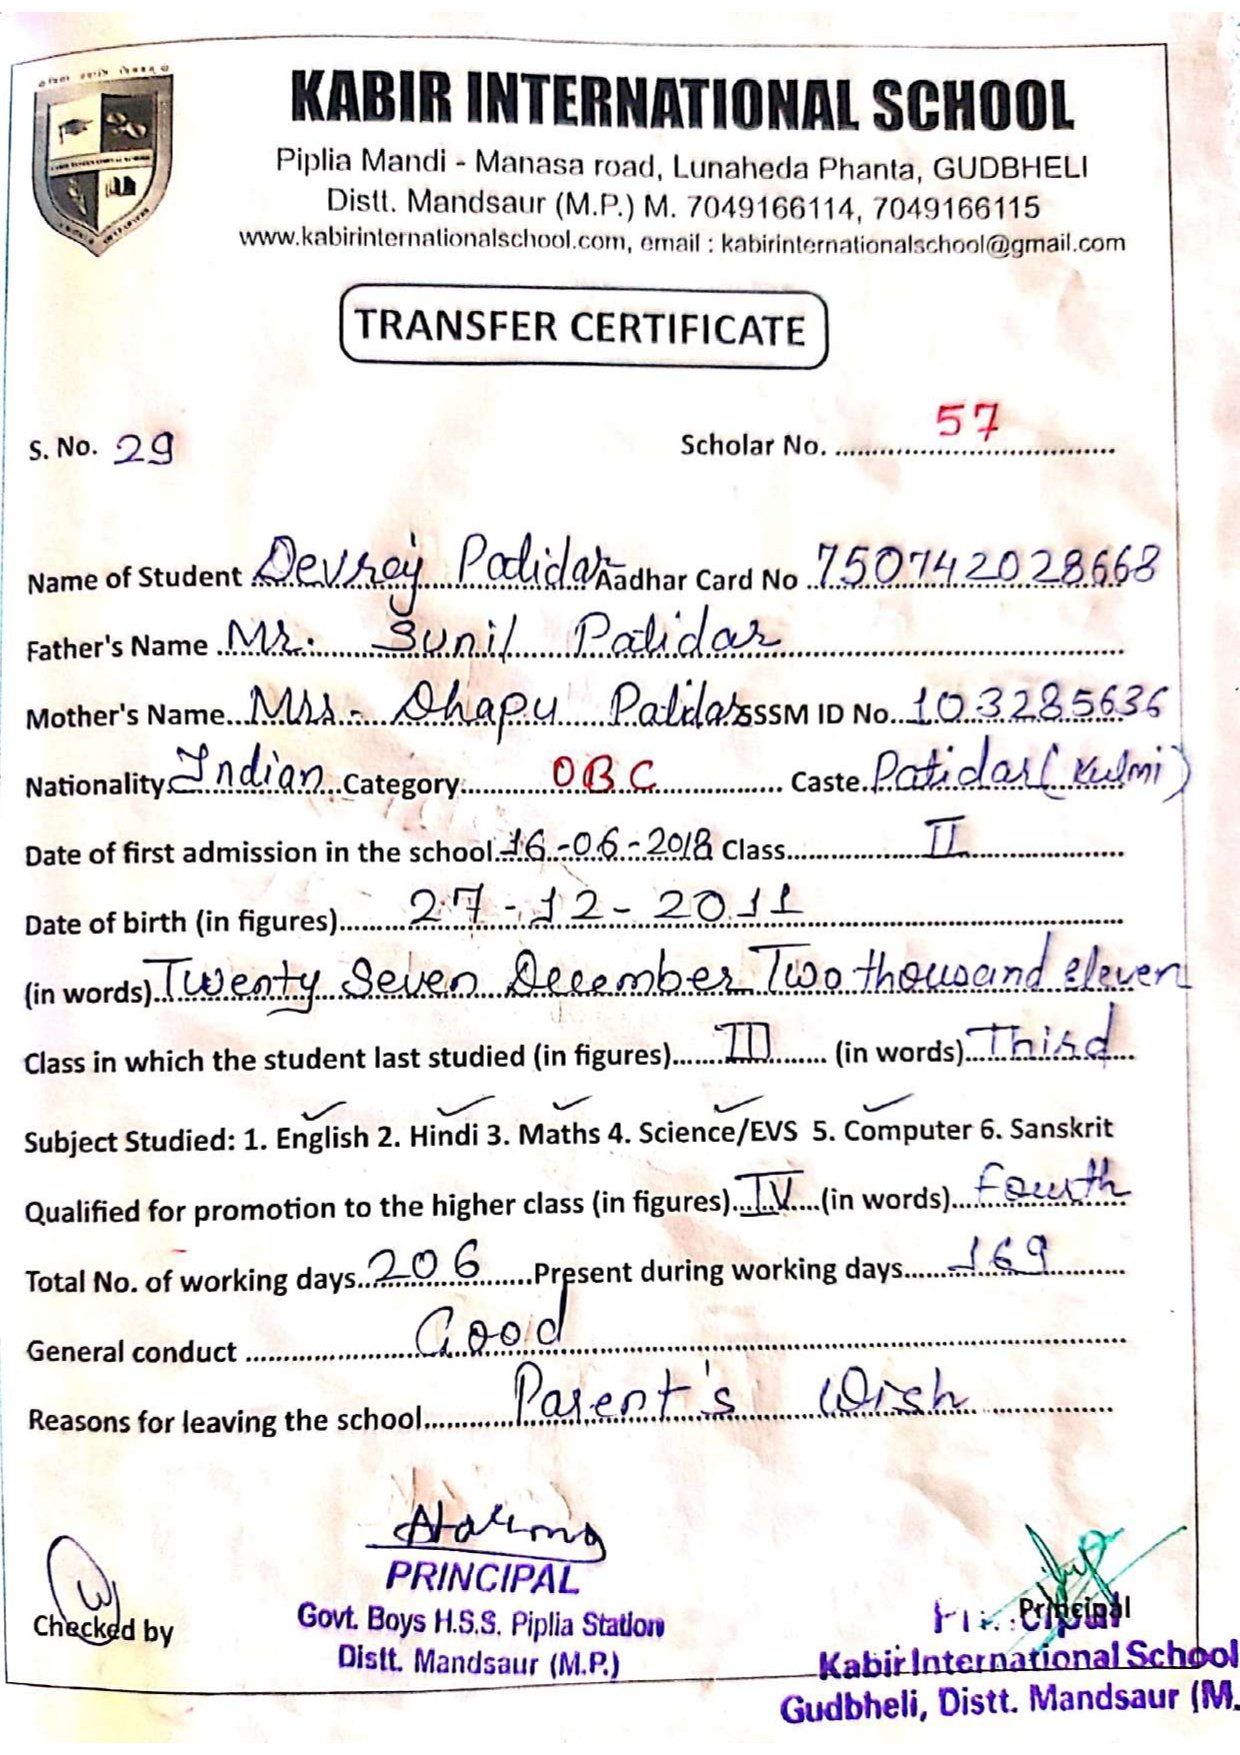 KABIR INTERNATIONAL SCHOOL
Piplia Mandi - Manasa road, Lunaheda Phanta, GUDBHELI
Distt. Mandsaur (M.P.) M. 7049166114, 7049166115
www.kabirinternationalschool.com, email : kabirinternationalschool@gmail.com
TRANSFER CERTIFICATE
S. No. 29 Scholar No. 57
Name of Student Devraj Patidar Aadhar Card No 750742028668
Father's Name Mr. Sunil Patidar
Mother's Name Mrs. Dhapu Patidar SSSM ID No. 103285636
Nationality Indian Category OBC Caste Patidar (Kulmi)
Date of first admission in the school 16-06-2018 Class II
Date of birth (in figures) 27-12-2011
(in words) Twenty Seven December Two thousand eleven
Class in which the student last studied (in figures) III (in words) Third
Subject Studied: 1. English 2. Hindi 3. Maths 4. Science/EVS 5. Computer 6. Sanskrit
Qualified for promotion to the higher class (in figures) IV (in words) Fourth
Total No. of working days 206 Present during working days 169
General conduct Good
Reasons for leaving the school Parent's Wish
Checked by
PRINCIPAL
Govt. Boys H.S.S. Piplia Station
Distt. Mandsaur (M.P.)
Principal
Kabir International School
Gudbheli, Distt. Mandsaur (M.